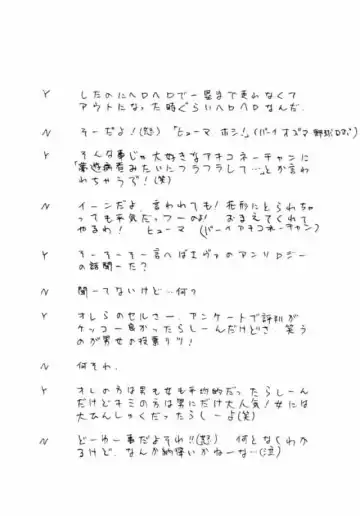 Y したのにヘロヘロで一塁まで走れなくて
アウトになった時ぐらいヘロヘロなんだ.
N そーだよ!(怒) 「ヒューマ ホシ!」(バーイ オズマ 野球ロボ)
Y そんな事じゃ大好きなアキコネーチャンに
「夢遊病者みたいにフラフラして…」とか言わ
れちゃうぞ!(笑)
N イーンだよ, 言われても! 花形にとられちゃ
っても平気だっつーのよ! おまえてくれて
やるわ! ヒューマ (バーイアキコネーチャン)
Y そーそーそー言へばエヴァのアンソロジー
の話聞ーた?
N 聞ーてないけど…何?
Y オレらのセルさー, アンケートで評判が
ケッコー良かったらしーんだけどさ 笑う
のが男女の投票リツ!
N 何それ.
Y オレの方は男も女も平均的だったらしーん
だけどキミの方は男にだけ大人気! 女には
大ひんしゅくだったらしーよ(笑)
N どーゆー事だよそれ!!(怒) 何となくわか
るけど, なんか納得いかねーな…(泣)